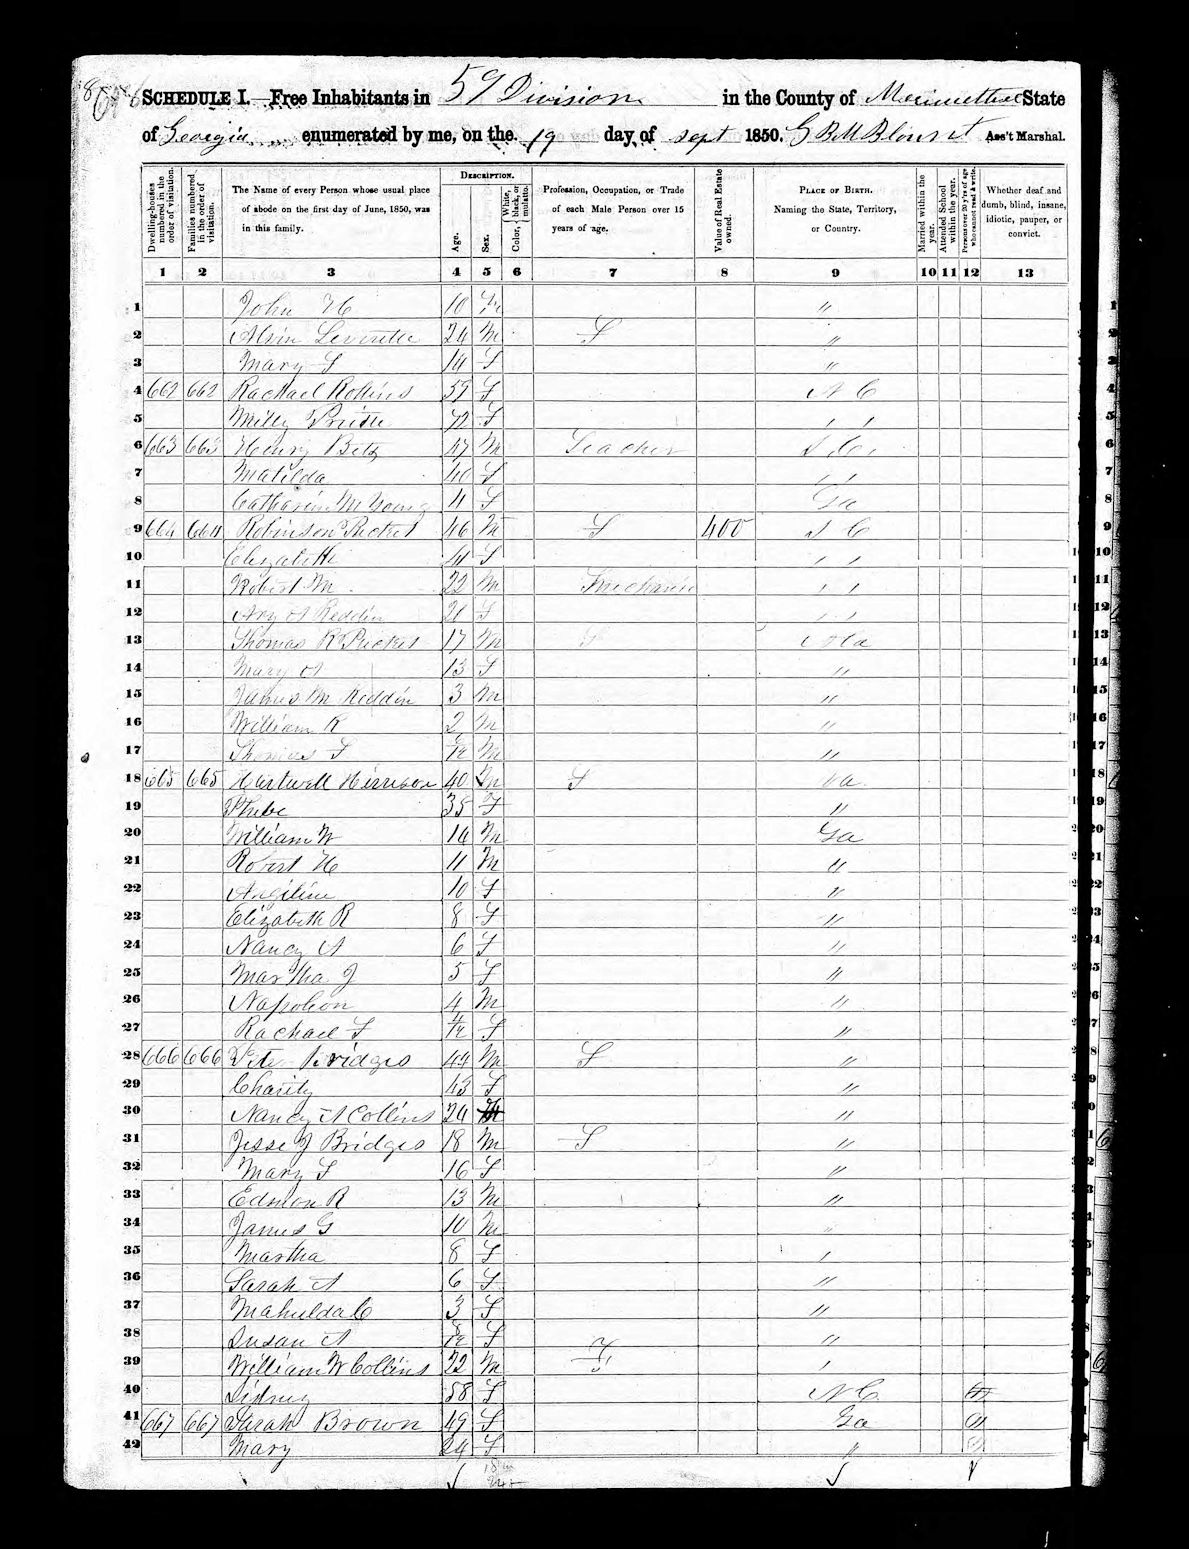 SCHEDULE I. Free Inhabitants in 59 Division in the County of Meriwether State
of Georgia enumerated by me, on the 19 day of Sept 1850. Ass't Marshal.
Dwelling-houses numbered in the order of visitation.
Families numbered in the order of visitation.
The Name of every Person whose usual place of abode on the first day of June, 1850, was in this family.
DESCRIPTION.
Age.
Sex.
Color, { White, black, or mulatto.
Profession, Occupation, or Trade of each Male Person over 15 years of age.
Value of Real Estate owned.
PLACE OF BIRTH. Naming the State, Territory, or Country.
Married within the year.
Attended School within the year.
Persons over 20 y'rs of age who cannot read & write.
Whether deaf and dumb, blind, insane, idiotic, pauper, or convict.
1 2 3 4 5 6 7 8 9 10 11 12 13
1 John H 10 "
2 Leverette 24 m F "
3 Mary F 14 F "
4 662 662 Rachael Rollins 59 F N C
5 Milly 72 F " "
6 663 663 Henry Betz 47 m Teacher S. C.
7 Matilda 40 F " "
8 Catharin M Young 11 F Ga
9 664 664 Robinson Pucket 46 m F 400 S C
10 Elizabeth 41 F " "
11 Robert M 22 m " "
12 Reddin 21 F " "
13 Thomas R Pucket 17 m F Ga
14 Mary A 13 F "
15 James M Reddin 3 m "
16 William R 2 m "
17 Thomas F 6/12 m "
18 665 665 Hartwell 40 m F Va
19 Phebe 35 F "
20 William W 14 m Ga
21 Robert H 11 m "
22 Angiline 10 F "
23 Elizabeth R 8 F "
24 Nancy A 6 F "
25 Martha J 5 F "
26 Napoleon 4 m "
27 Rachael F 4/12 F "
28 666 666 Bridges 44 m F "
29 Charity 43 F "
30 Nancy A Collins 24 "
31 Jesse J Bridges 18 m F "
32 Mary F 16 F "
33 Edmon R 13 m "
34 James G 10 m "
35 Martha 8 F "
36 Sarah A 6 F "
37 Mahulda C 3 F "
38 Susan A 8/12 F "
39 William W Collins 22 m F "
40 Sidney 58 F N C
41 667 667 Sarah Brown 49 F Ga
42 Mary 24 F "